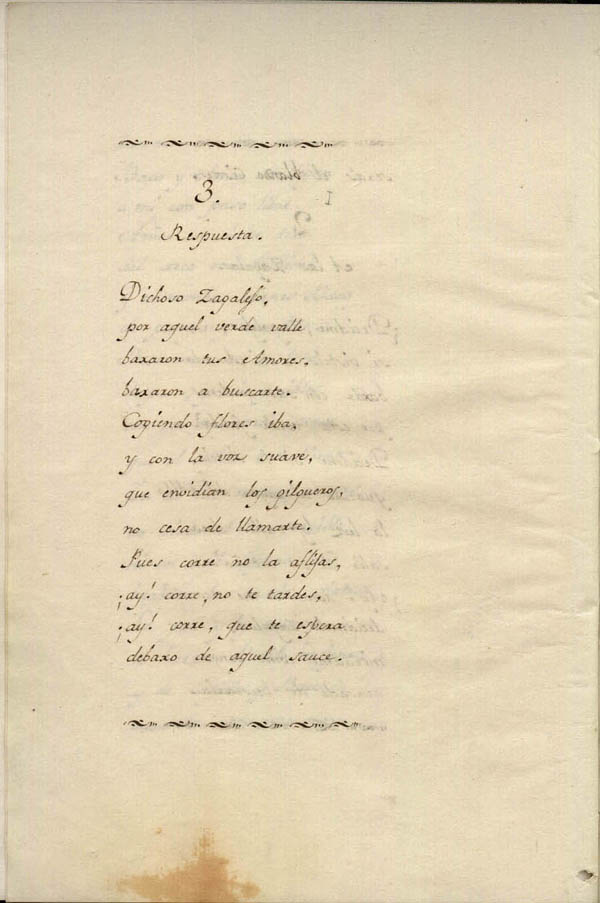 3.
Respuesta.
Dichoso Zagalejo,
por aquel verde valle
baxaron tus Amores.
baxaron a buscarte.
Cogiendo flores iba,
y con la voz suave,
que envidian los gilgueros,
no cesa de llamarte.
Pues corre no la aflijas,
¡ay! corre, no te tardes,
¡ay! corre, que te espera
debaxo de aquel sauce.